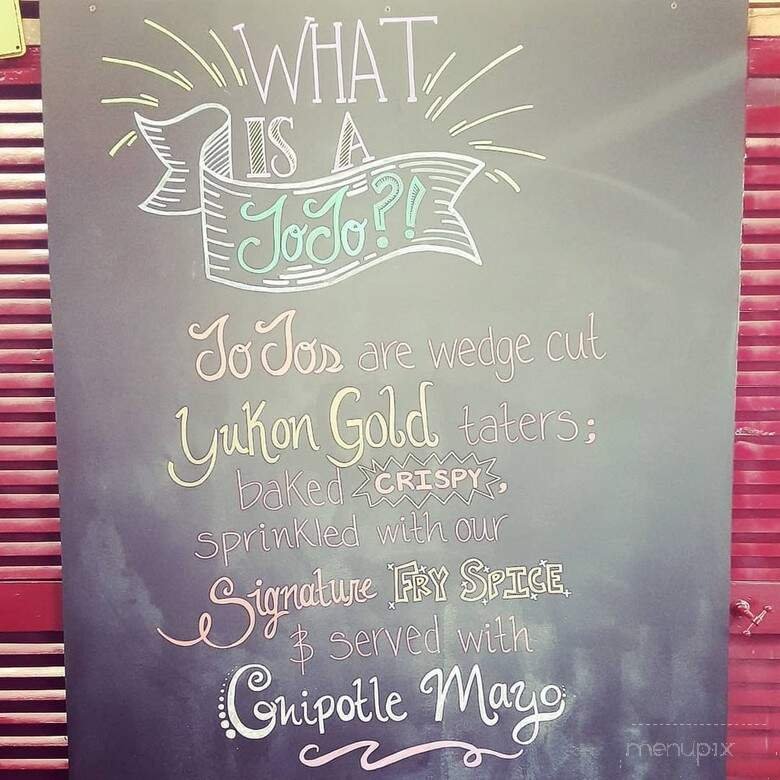 WHAT
IS A
JoJo?!
JoJos are wedge cut
Yukon Gold taters;
baked CRISPY,
sprinkled with our
Signature FRY SPICE
& served with
Chipotle Mayo
menupix